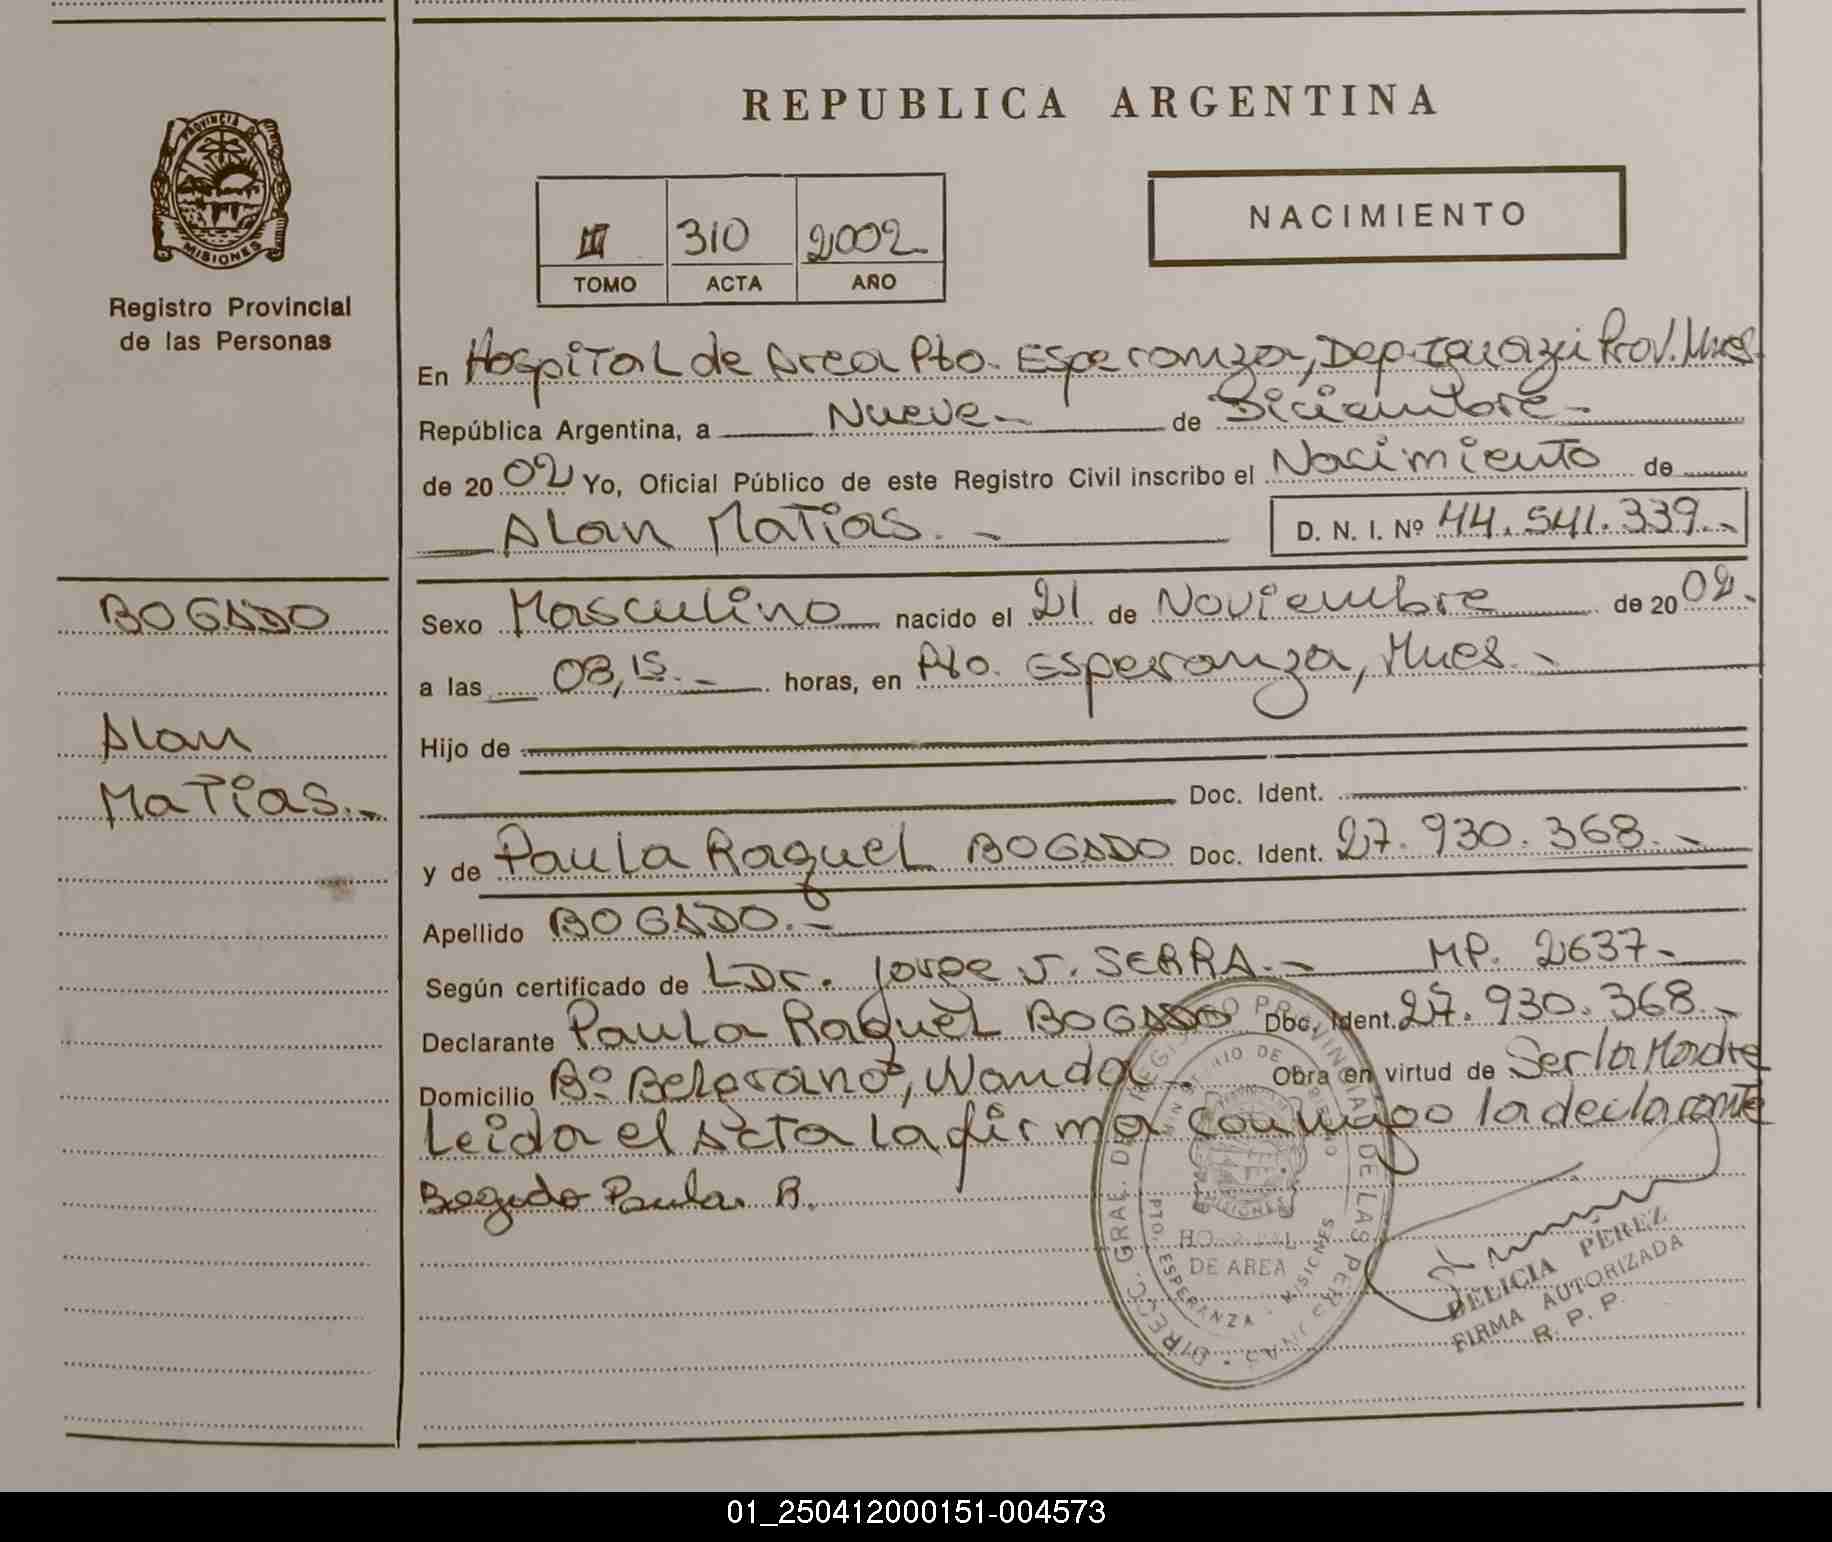 REPUBLICA ARGENTINA
PROVINCIA DE
MISIONES
Registro Provincial
de las Personas
III 310 2002
TOMO ACTA AÑO
NACIMIENTO
En Hospital de Area Pto. Esperanza, Dep. Iguazú Prov. Mnes.
República Argentina, a Nueve de Diciembre
de 2002 Yo, Oficial Público de este Registro Civil inscribo el Nacimiento de
Alan Matias.- D. N. I. Nº 44.541.339.-
BOGADO
Alan
Matias.-
Sexo Masculino nacido el 21 de Noviembre de 2002.
a las 08,15.- horas, en Pto. Esperanza, Mnes.-
Hijo de
Doc. Ident.
y de Paula Raquel BOGADO Doc. Ident. 27.930.368.-
Apellido BOGADO.-
Según certificado de Dr. Jorge J. SERRA.- MP. 2637-
Declarante Paula Raquel BOGADO Doc. Ident. 27.930.368.-
Domicilio Bº Belgrano, Wanda.- Obra en virtud de Ser la Madre
Leida el Acta la firma conmigo la declarante
Bogado Paula R.
DIRECC. GRAL. DEL REGISTRO PROVINCIAL DE LAS PERSONAS
MINISTERIO DE GOBIERNO
MISIONES
HOSPITAL
DE AREA
PTO. ESPERANZA - MISIONES
DELICIA PÉREZ
FIRMA AUTORIZADA
R. P. P.
01_250412000151-004573